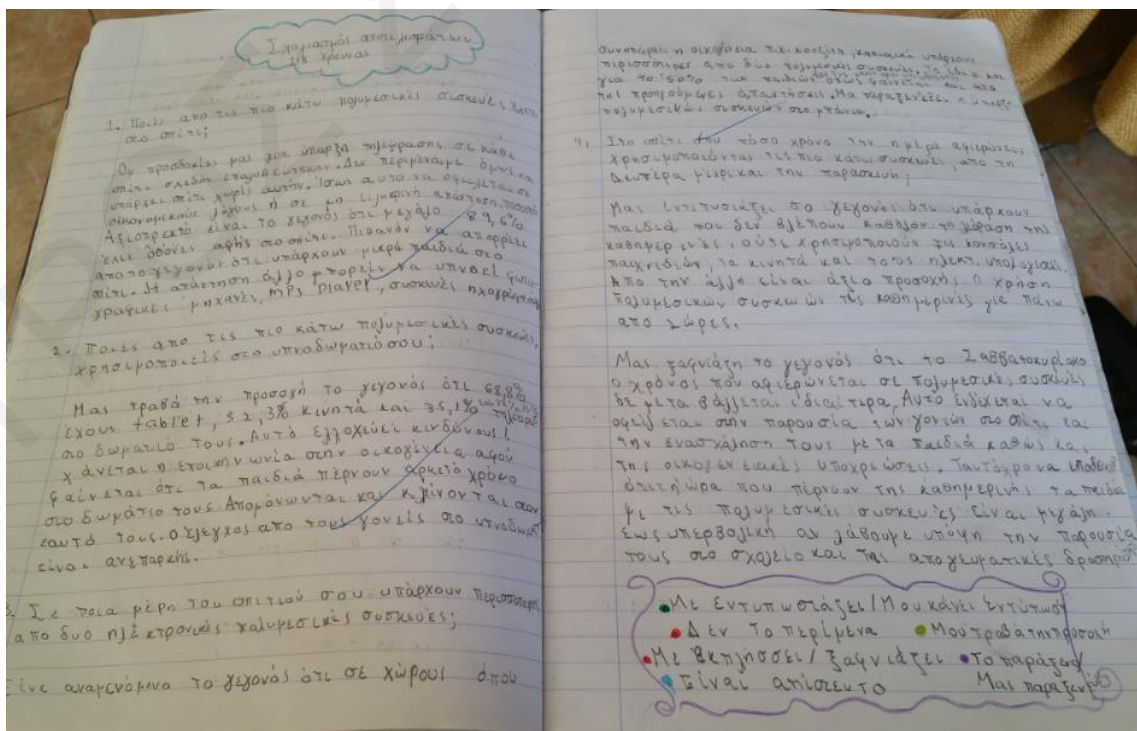 Σχολιασμός αποτελεσμάτων
της έρευνας
1. Ποιες απο τις πιο κάτω πολυμεσικές συσκευές έχετε
στο σπίτι;
Οι προσδοκίες μας για ύπαρξη τηλεόρασης σε κάθε
σπίτι σχεδόν επαληθεύτηκαν. Δεν περιμέναμε όμως να
υπάρχει σπίτι χωρίς αυτήν. Ίσως αυτο να οφείλεται σε
οικονομικούς λόγους ή σε μη ειλικρινή απάντηση.
Αξιοπρεκτο είναι το γεγονός ότι μεγάλο ποσοστό 89,6%
έχει οθόνες αφής στο σπίτι. Πιθανόν να απορρέει
απο το γεγονός ότι υπάρχουν μικρά παιδιά στο
σπίτι. Η απάντηση άλλο μπορείν να υπνοεί φωτο
γραφικές μηχανές, mp3 player, συσκευές ηχογράφησης
2. Ποιές απο τις πιο κάτω πολυμεσικές συσκευές,
χρησιμοποιείς στο υπνοδωμάτιό σου;
Μας τραβά την προσοχή το γεγονός ότι 68,8%
έχουν tablet, 52,3% κινητά και 35,1% τηλεόραση
στο δωμάτιό τους. Αυτό ελλοχεύει κινδύνους!
χάνεται η επικοινωνία στην οικογένεια αφού
φαίνεται ότι τα παιδιά πέρνουν αρκετό χρόνο
στο δωμάτιο τους. Απομόνωνται και κλίνονται στον
εαυτό τους. Ο έλεγχος απο τους γονείς στο υπνοδωμάτιο
είναι ανεπαρκής.
3. Σε ποια μέρη του σπιτιού σου υπάρχουν περισσότερες
απο δυο ηλεκτρονικές πολυμεσικές συσκευές;
Είνε αναμενόμενο το γεγονός ότι σε χώρους όπου
συνυπάρχει η οικογένεια π.χ. κουζίνα, καθιστικό υπάρχουν
περισσότερες απο δυο πολυμεσικές συσκευές. Το ίδιο και
για το 50% των παιδιών όπως φαίνεται και απο
τις προηγούμενες απαντήσεις. Μα παραξενεύει η υπαρξη
πολυμεσικών συσκευών στο μπάνιο.
4. Στο σπίτι σου πόσο χρόνο την ημέρα αφιερώνεις
χρησιμοποιώντας τις πιο κάτω συσκευές απο τη
Δευτέρα μέχρι και την παρασκευή;
Μας εντυπωσιάζει το γεγονός ότι υπάρχουν
παιδιά που δεν βλέπουν καθόλου τηλεόραση της
καθημερινές, ούτε χρησιμοποιούν τις κονσόλες
παιχνιδιών, τα κινητά και τους ηλεκτ. υπολογιστές.
Απο την άλλη είναι άξιο προσοχής η χρήση
πολυμεσικών συσκευών τις καθημερινές για πάνω
απο 2 ώρες.
Μας ξαφνιάζη το γεγονός ότι το Σαββατοκυρίακο
ο χρόνος που αφιερώνεται σε πολυμεσικές συσκευές
δε μεταβάλλεται ιδιαίτερα, Αυτό ενδέχεται να
οφείλεται στην παρουσία των γονιών στο σπίτι και
την ενασχόληση τους με τα παιδιά καθώς και
της οικογενειακές υποχρεώσεις. Ταυτόχρονα
ότι η ώρα που πέρνουν της καθημερινής τα παιδιά
με τις πολυμεσικές συσκευές είναι μεγάλη.
έως υπερβολική αν λάβουμε υπόψη την παρουσία
τους στο σχολείο και της απογευματικές δραστηριότητες
Με εντυπωσιάζει / Μου κάνει εντύπωση
Δεν το περίμενα Μου τραβά την προσοχή
Με εκπλήσσει / ξαφνιάζει Το παράξενο
Είναι απίστευτο Μας παραξενεύει